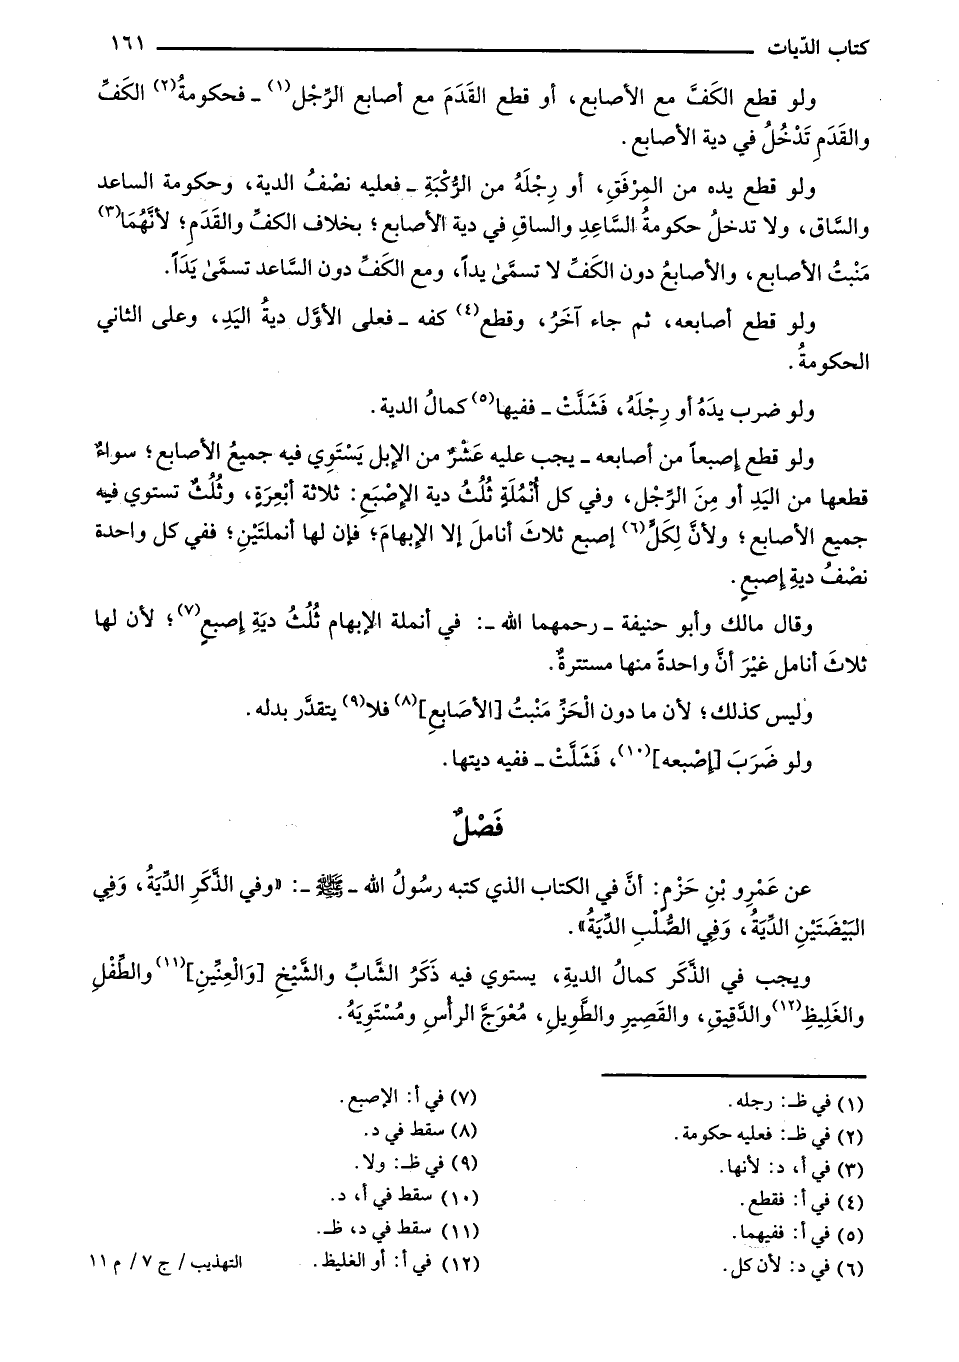 كتاب الدّيات ١٦١
ولو قطع الكَفَّ مع الأصابع، أو قطع القَدَمَ مع أصابع الرِّجْل(١) ـ فحكومةُ(٢) الكَفِّ
والقَدَمِ تَدْخُلُ في دية الأصابع.
ولو قطع يده من المِرْفَقِ، أو رِجْلَهُ من الرُّكْبَةِ ـ فعليه نصْفُ الدية، وحكومة الساعد
والسَّاق، ولا تدخلُ حكومةُ السَّاعِدِ والساقِ في دية الأصابع؛ بخلاف الكفِّ والقَدَمِ؛ لأنَّهُمَا(٣)
مَنْبتُ الأصابع، والأصابعُ دون الكَفِّ لا تسمَّىٰ يداً، ومع الكَفِّ دون السَّاعد تسمَّىٰ يَدَاً.
ولو قطع أصابعه، ثم جاء آخَرُ، وقطع(٤) كفه ـ فعلى الأوَّل ديةُ اليَدِ، وعلى الثاني
الحكومةُ.
ولو ضرب يدَهُ أو رِجْلَهُ، فَشَلَّتْ ـ ففيها(٥) كمالُ الدية.
ولو قطع إصبعاً من أصابعه ـ يجب عليه عَشْرٌ من الإبل يَسْتَوِي فيه جميعُ الأصابع؛ سواءٌ
قطعها من اليَدِ أو مِنَ الرِّجْل، وفي كل أُنْمُلَةٍ ثُلُثُ دية الإصْبَعِ: ثلاثة أبْعِرَةٍ، وثُلُثٌ تستوي فيه
جميع الأصابع؛ ولأنَّ لِكَلِّ(٦) إصبع ثلاثَ أناملَ إلا الإبهامَ؛ فإن لها أنملتَيْنِ؛ ففي كل واحدة
نصْفُ ديةِ إصبعٍ.
وقال مالك وأبو حنيفة ـ رحمهما الله ـ: في أنملة الإبهام ثُلُثُ ديَةِ إصبعٍ(٧)؛ لأن لها
ثلاثَ أنامل غيْرَ أنَّ واحدةً منها مستترةٌ.
وليس كذلك؛ لأن ما دون الْحَزِّ مَنْبتُ [الأصَابعِ](٨) فلا(٩) يتقدَّر بدله.
ولو ضَرَبَ [إصْبعه](١٠)، فَشَلَّتْ ـ ففيه ديتها.
فَصْلٌ
عن عَمْرِو بْنِ حَزْمٍ: أنَّ في الكتاب الذي كتبه رسُولُ الله ـ ﷺ ـ: «وفي الذَّكَرِ الدِّيَةُ، وَفِي
البَيْضَتَيْنِ الدِّيَةُ، وَفِي الصُّلْبِ الدِّيَةُ».
ويجب في الذَّكَر كمالُ الديةِ، يستوي فيه ذَكَرُ الشَّابِّ والشَّيْخِ [وَالْعِنِّينِ](١١) والطِّفْلِ
والغَلِيظِ(١٢) والدَّقِيقِ، والقَصِيرِ والطَّوِيلِ، مُعْوَجَّ الرأْسِ ومُسْتَوِيَهُ.
(١) في ظـ: رجله.
(٢) في ظـ: فعليه حكومة.
(٣) في أ، د: لأنها.
(٤) في أ: فقطع.
(٥) في أ: ففيهما.
(٦) في د: لأن كل.
(٧) في أ: الإصبع.
(٨) سقط في د.
(٩) في ظـ: ولا.
(١٠) سقط في أ، د.
(١١) سقط في د، ظـ.
(١٢) في أ: أو الغليظ.
التهذيب / ج ٧ / م ١١